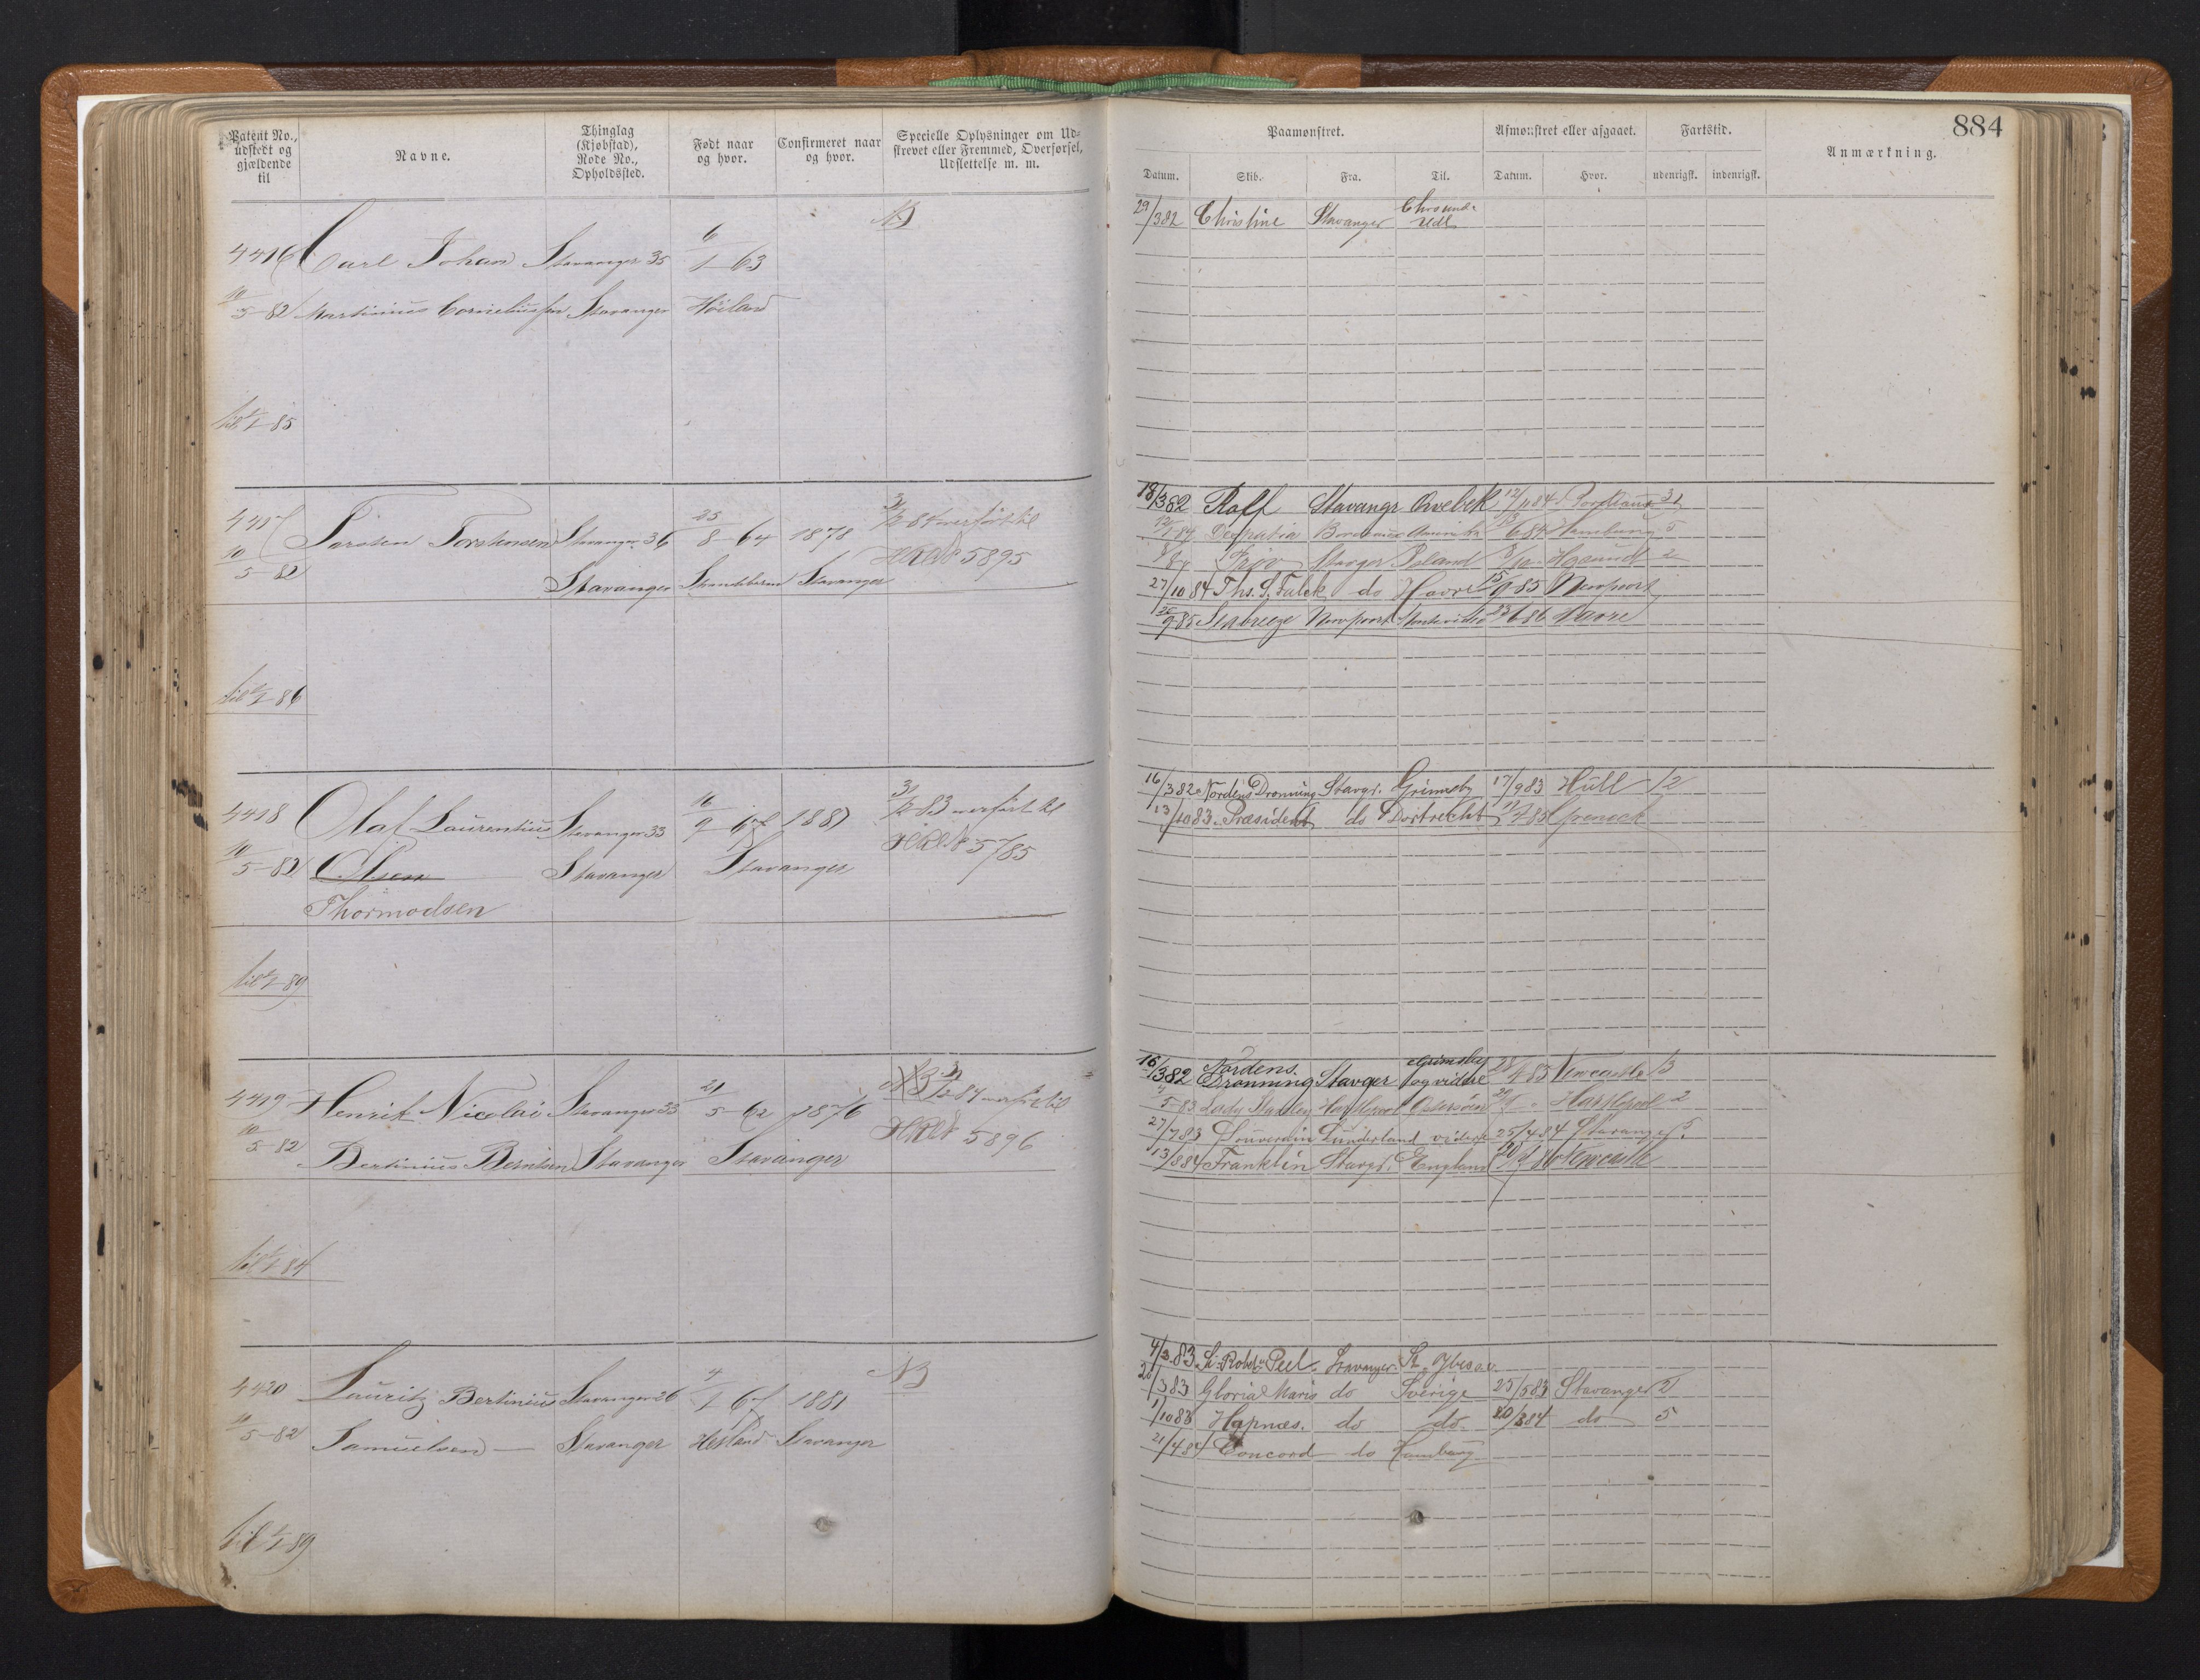 Patent No., udstedt og gjældende til
Navne.
Thinglag (Kjøbstad), Rode No., Opholdssted.
Født naar og hvor.
Confirmeret naar og hvor.
Specielle Oplysninger om Udskrevet eller Fremmed, Overførsel, Udslettelse m. m.
4416 Carl Johan Stavanger 35 6/1-63 NB
10/5-82 Martinius Corneliussen Stavanger Høiland
til 1/1-85
4417 Torsten Torstensen Stavanger 36 25/8-64 1878 31/12 84 overført til
10/5-82 Stavanger Strandebarm Stavanger HRD No 5895
til 1/1-86
4418 Olaf Laurentius Stavanger 33 16/9 67 1881 31/12-83 overført til
10/5-82 Olsen Stavanger Stavanger HRD No 5785
Thormodsen
til 1/1-89
4419 Henrik Nicolai Stavanger 33 21/5-62 1876 NB 31/12-84 overført til
10/5-82 Bertinius Berntsen Stavanger Stavanger HRD No 5896
til 1/1-84
4420 Lauritz Bertinius Stavanger 26 4/1 67 1881 NB
10/5-82 Samuelsen Stavanger Hetland Stavanger
til 1/1-89
884
Paamønstret.
Afmønstret eller afgaaet.
Fartstid.
Anmærkning.
Datum. Skib. Fra. Til. Datum. Hvor. udenrigsk. indenrigsk.
29/3 82 Christine Stavanger Chrsund Udl
18/3 82 Rolf Stavangr Qvebek 12/1 84 31
Deogratia Amerika 6 84 Hamburg 5
Stavger Island 8/10 Hgsund 2
27/10 84 Ths. S. Falck do Havre 15/9 85 Newport
25/9 85 Seabreeze Newport Montevideo 23/6 86 Havre
16/3 82 Nordens Dronning Stavgr. Grimsby 17/9 83 Hull 12
13/10 83 Præsident do Dortrecht 11/7 85 Grenock
16/3 82 Nordens Dronning Stavger Grimsby og videre 28/4 83 Newcastle 13
4/5-83 Lady Hartlepool Østersøen Hartlepool 2
27/7 83 Souverain Sunderland videre 25/4 84 Stavanger 5
13/8 84 Franklin Stavgr. England Newcastle
4/3 83 Sir Robt Peel. Stavanger St. Ybes o.v.
28/3 83 Gloria Maris do Sverige 25/5 83 Stavanger 2
1/10 83 Hapnæs. do do 20/3 84 do 5
21/4 84 Concord do Hamburg